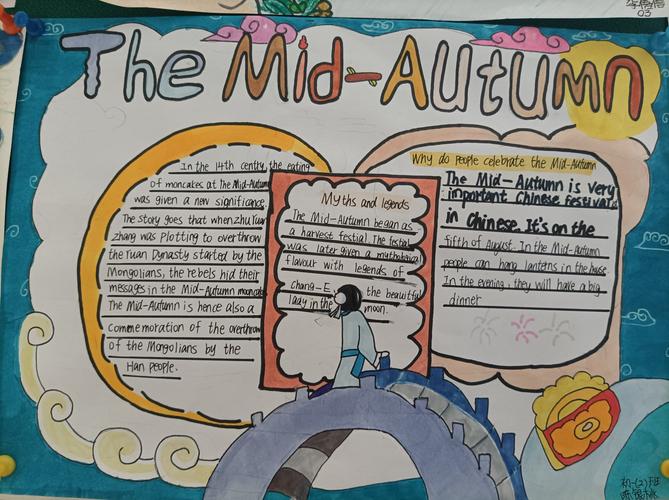 The Mid-Autumn
In the 14th centry, the eating
of moncakes at The Mid-Autum
was given a new significance.
The story goes that when zhu Yuan
zhang was Plotting to overthrow
the Yuan Dynasty started by the
Mongolians, the rebels hid their
messages in the Mid-Autumn
The Mid-Autumn is hence also a
commemoration of the overthrow
of the Mongolians by the
Han People.
Myths and legends
The Mid-Autumn began as
a harvest festial. The festial
was later given a mythological
flavour with legends of
Chang-E the beautiful
lady in the moon.
Why do people celebrate the Mid-Autumn
The Mid-Autumn is very
important Chinese festival
in Chinese. It's on the
fifth of August. In the Mid-autumn
people can hang lantetns in the house
In the evening, they will have a big
dinner
03
初一(2)班